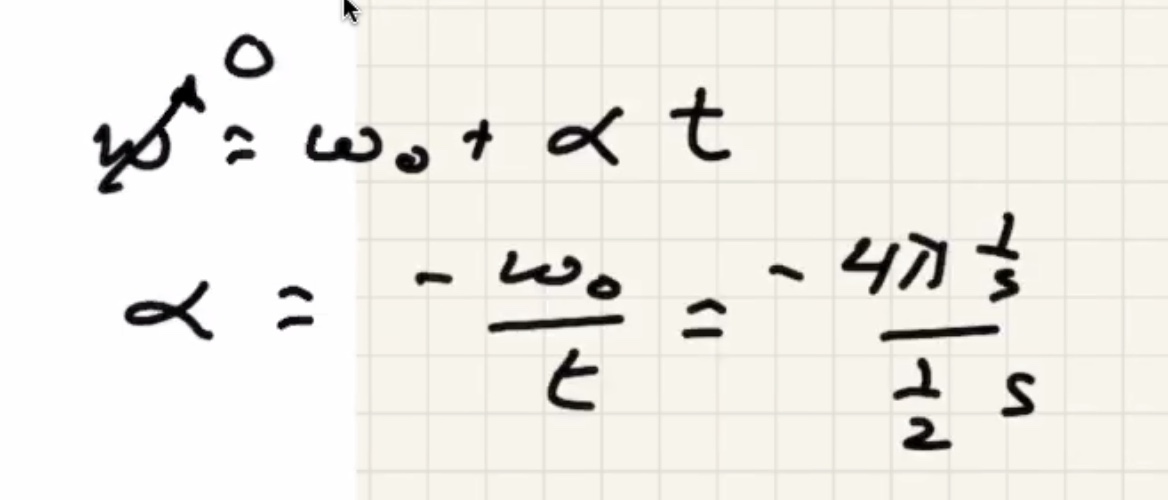 ω↗0 = ω₀ + α t
α = - ω₀/t = - 4π 1/s / 1/2 s